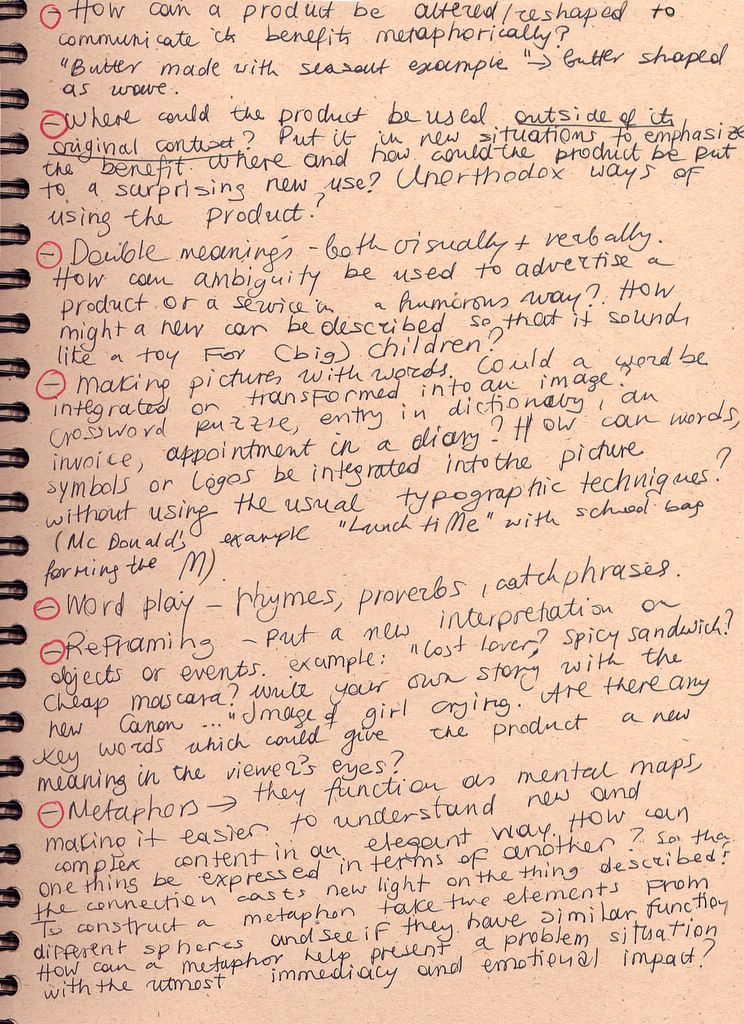 - How can a product be altered/reshaped to
communicate its benefits metaphorically?
"Butter made with seasalt example" -> butter shaped
as wave.
- Where could the product be used outside of its
original context? Put it in new situations to emphasize
the benefit. Where and how could the product be put
to a surprising new use? Unorthodox ways of
using the product?
- Double meanings - both visually + verbally.
How can ambiguity be used to advertise a
product or a service in a humorous way? How
might a new car be described so that it sounds
like a toy For (big) children?
- Making pictures with words. Could a word be
integrated or transformed into an image?
crossword puzzle, entry in dictionary, an
invoice, appointment in a diary? How can words,
symbols or logos be integrated into the picture
without using the usual typographic techniques?
(McDonald's example "Lunch tiMe" with school bag
forming the M)
- Word play - rhymes, proverbs, catchphrases.
- Reframing - Put a new interpretation on
objects or events. example: "Lost lover? Spicy sandwich?
Cheap mascara? Write your own story with the
new Canon..." Image of girl crying. Are there any
key words which could give the product a new
meaning in the viewer's eyes?
- Metaphors -> they function as mental maps,
making it easier to understand new and
complex content in an elegant way. How can
one thing be expressed in terms of another? So that
the connection casts new light on the thing described?
To construct a metaphor take two elements from
different spheres and see if they have similar function
How can a metaphor help present a problem situation
with the utmost immediacy and emotional impact?